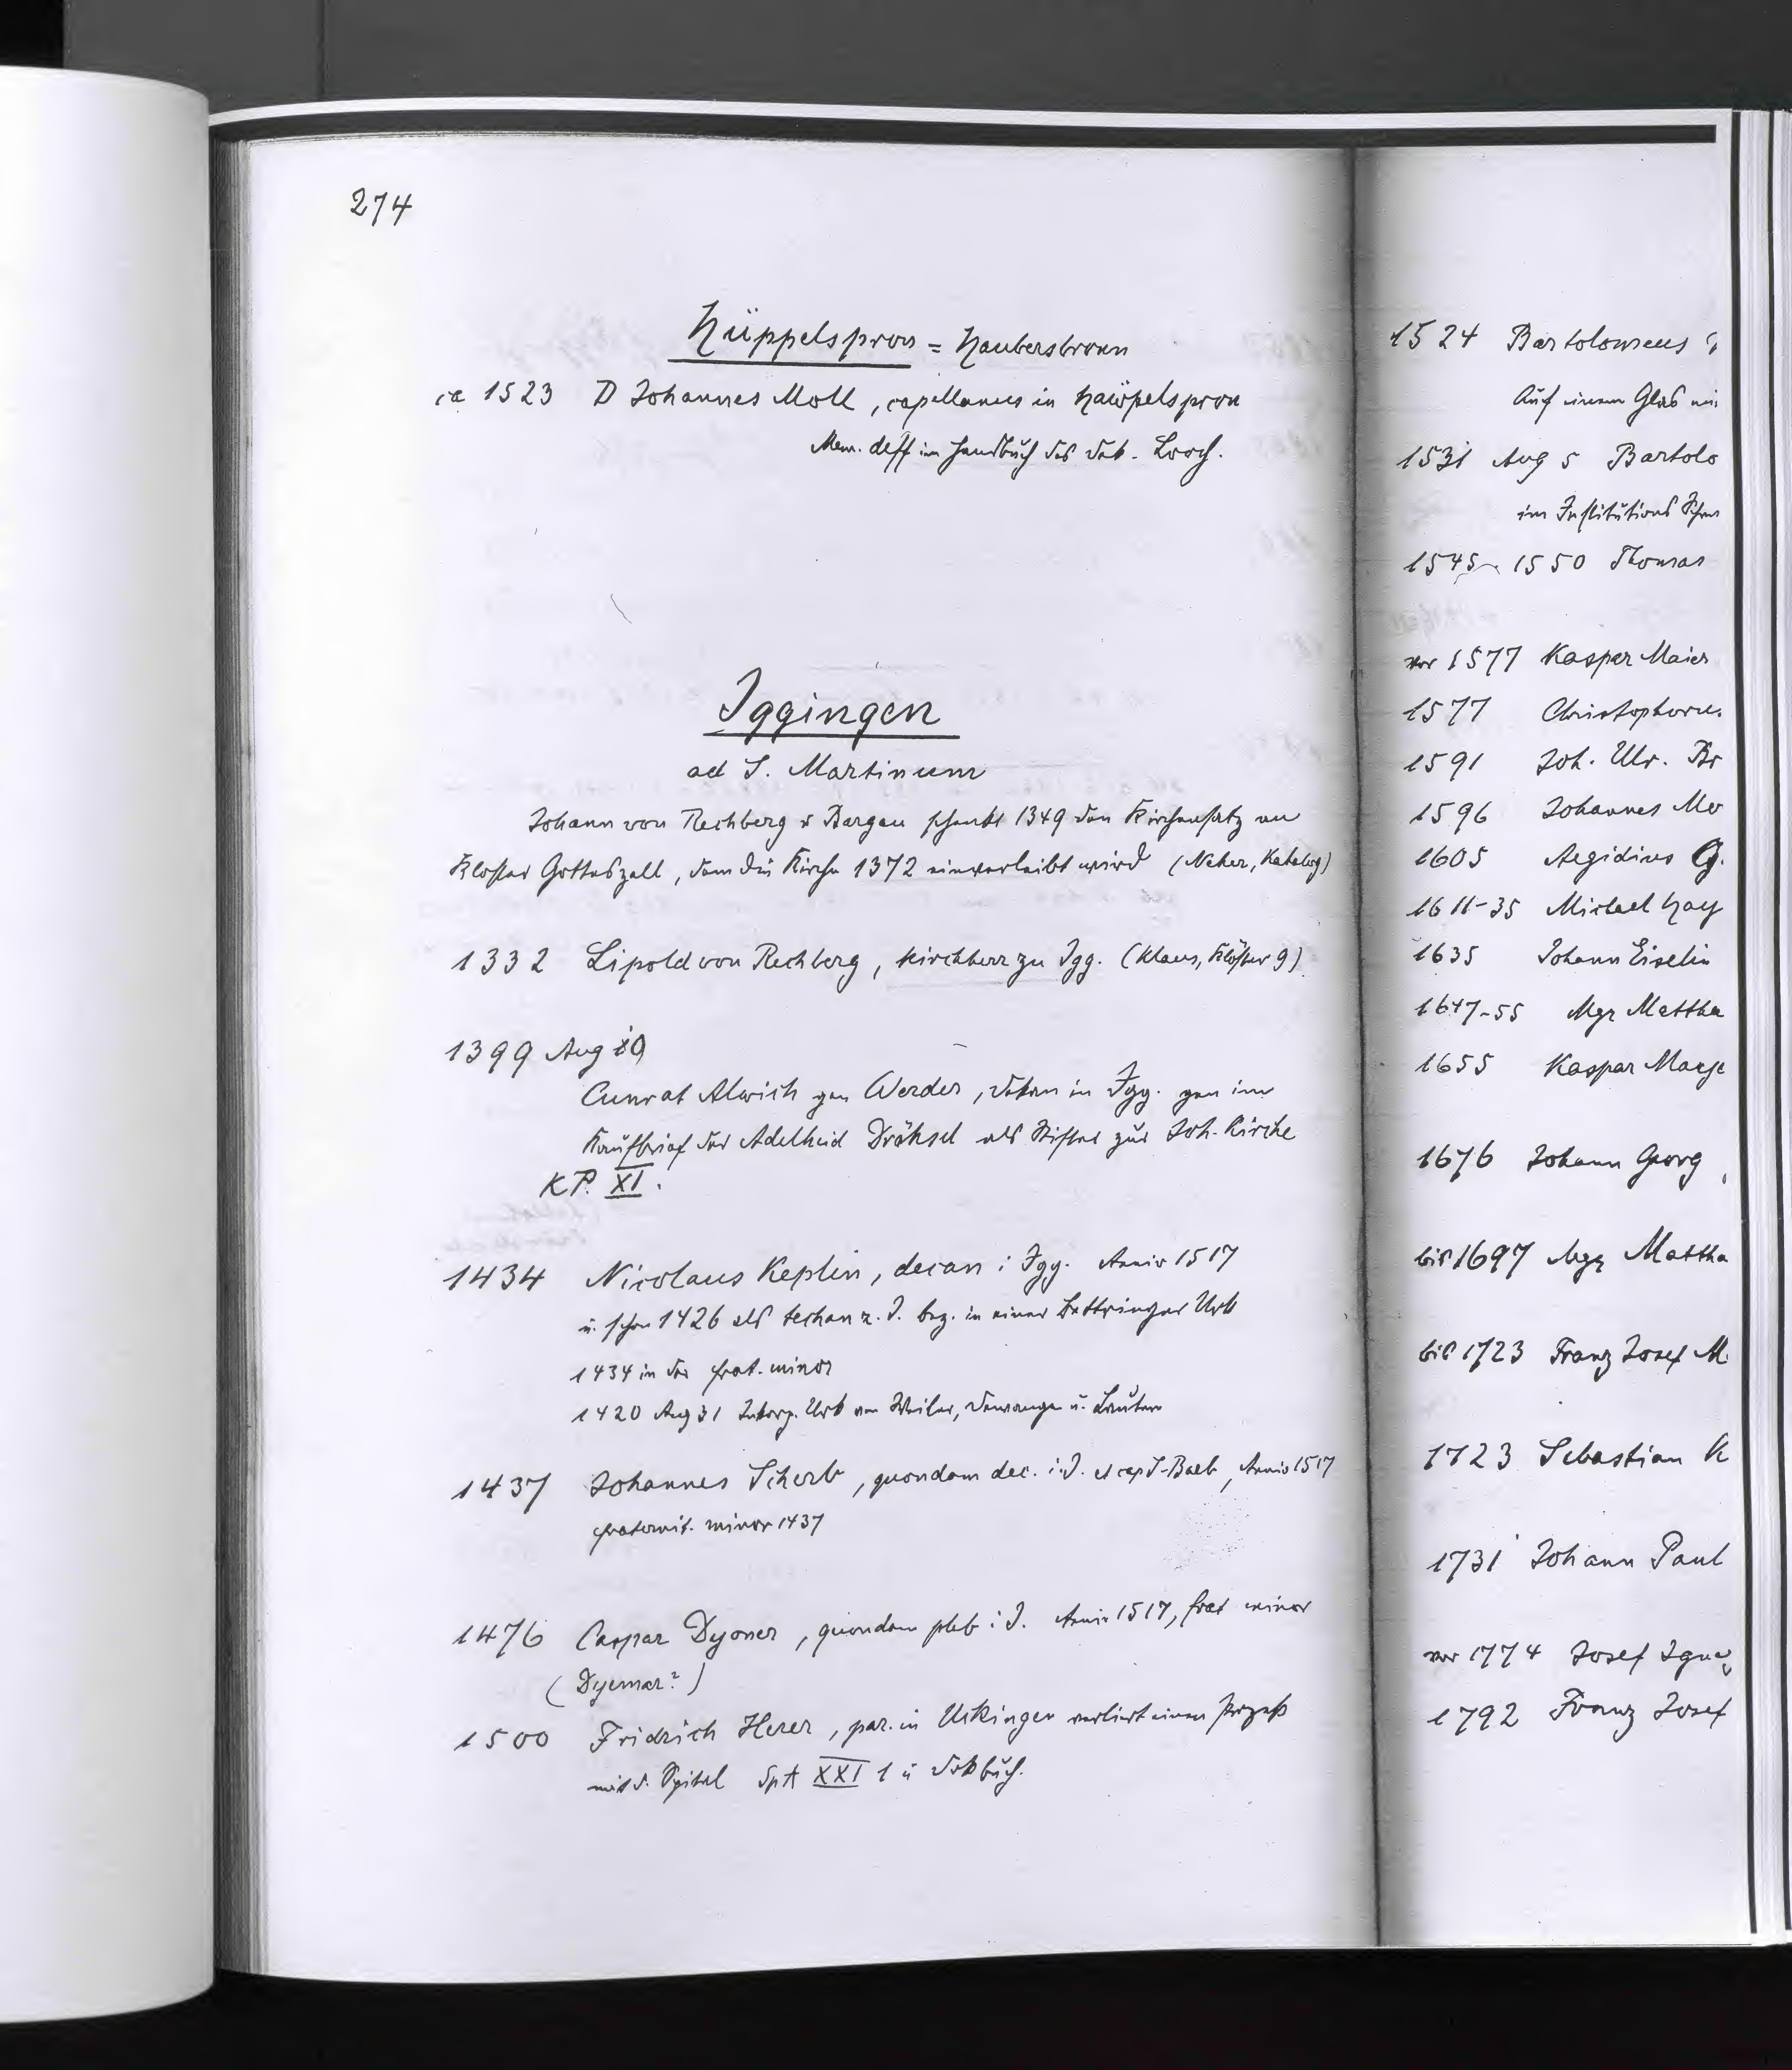 274
Hüppelspron = Haubersbronn
ca 1523 D Johannes Moll, capellanus in Haiepelspron
Mem. deff im Handbuch des Dek. Lorch.
Iggingen
ad S. Martinum
Johann von Rechberg v Bargau schenkt 1349 den Kirchensatz an
Kloster Gotteszell, dem die Kirche 1372 einverleibt wird (Neher, Katalog)
1332 Lipold von Rechberg, Kirchherr zu Igg. (Klaus, Klöster 9)
1399 Aug
Cunrat Alwich gen Werder, Dekan in Igg. gen im
Kaufbrief der Adelheid Drähsel als Stifter zur Joh. Kirche
KP. XI.
1434 Nicolaus Keplin, decan i Igg. Anniv 1517
u. schon 1426 als techan z. I. bez. in einer Bettringer Urk
1434 in der frat. minor
1420 Aug 31 Urk von Weiler, Dewangen u. Lautern
1437 Johannes Scherb, quondam dec. i. I. et cap S. Barb, Anniv 1517
fraternit. minor 1437
1476 Caspar Dyoner, quondam pleb i I. Anniv 1517, frat minor
(Dyemar?)
1500 Fridrich Herer, par. in Utkingen verliert einen Prozeß
mit d. Spital SpA XXI 1 u Dekbuch.
1524 Bartolomeus
Auf einem Glas
1531 Aug 5 Bartolo
im Institutions
1545-1550 Thomas
vor 1577 Kaspar Maier
1577 Christophorus
1591 Joh. Ulr. Br
1596 Johannes Me
1605 Aegidius G.
1611-35 Michael Hay
1635 Johann Eiselin
1647-55 Mgr Mattha
1655 Kaspar Maye
1676 Johann Georg
bis 1697 Mgr Mattha
bis 1723 Franz Josef M
1723 Sebastian K
1731 Johann Paul
vor 1774 Josef Ignaz
1792 Franz Josef